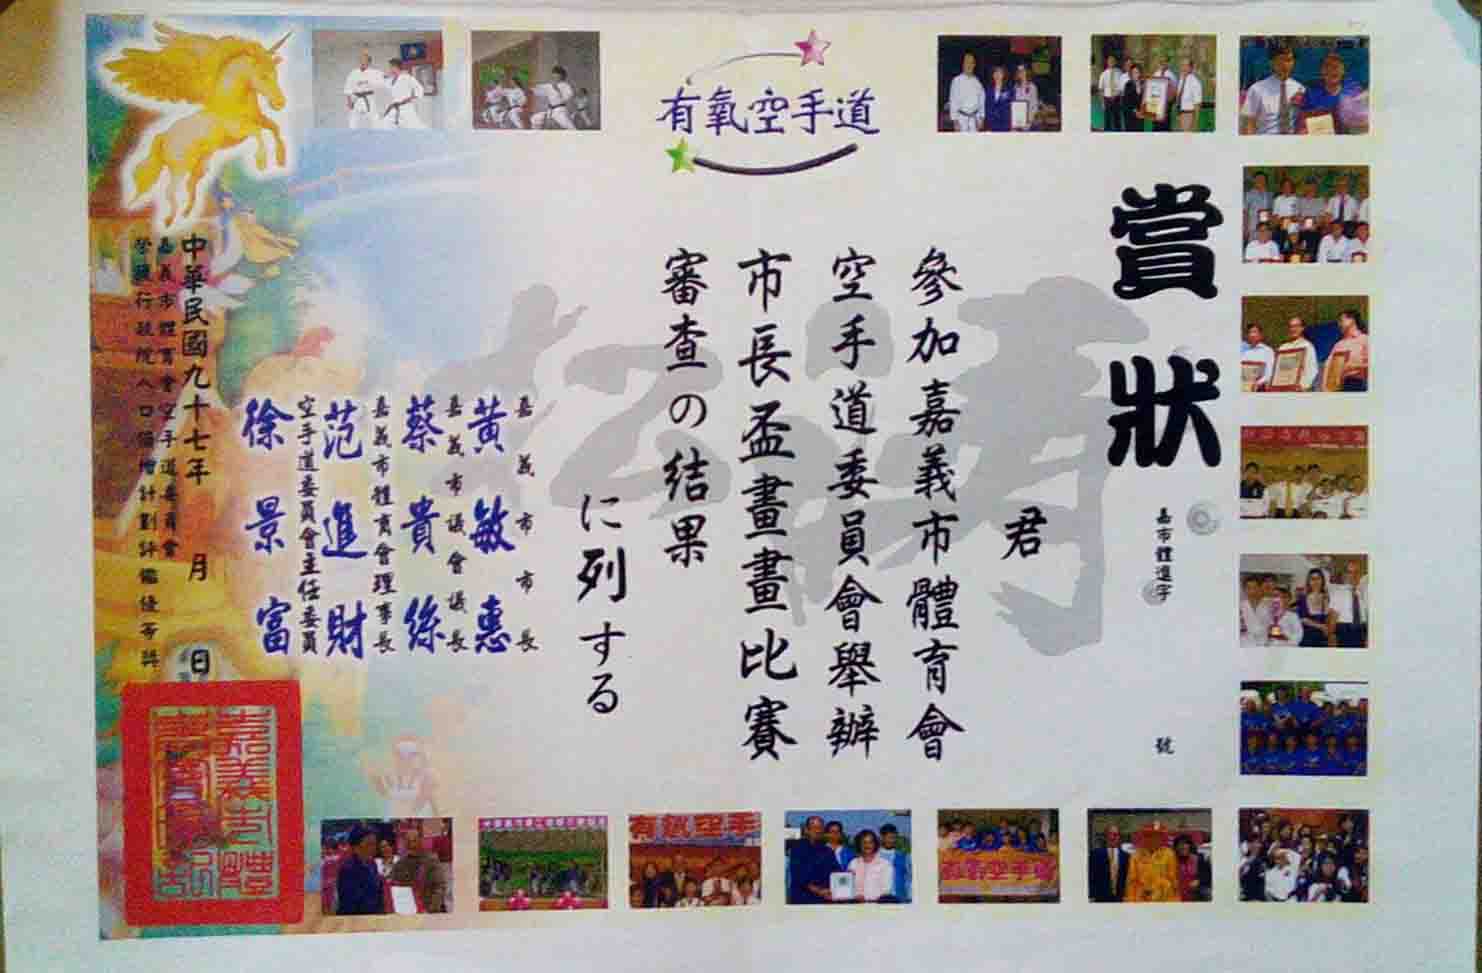 有氧空手道
賞狀
嘉市體進字　號
君
參加嘉義市體育會
空手道委員會舉辦
市長盃畫畫比賽
審查の結果
に列する
嘉義市市長
黃敏惠
嘉義市議會議長
蔡貴絲
嘉義市體育會理事長
范進財
空手道委員會主任委員
徐景富
中華民國九十七年　月　日
嘉義市體育會空手道委員會
榮獲行政院人口倍增計劃評鑑優等獎
有氧空手